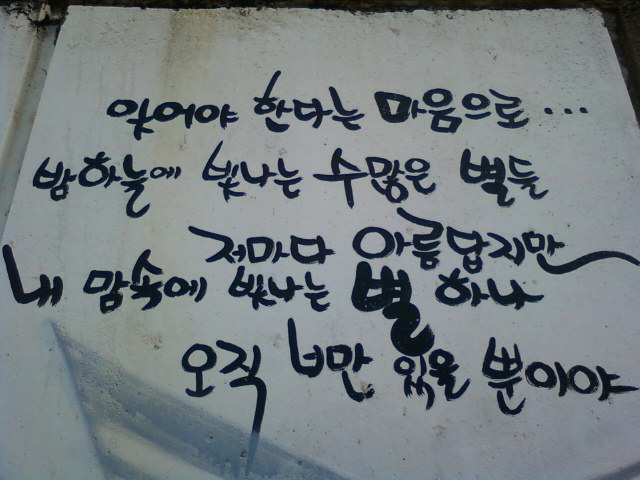 잊어야 한다는 마음으로...
밤하늘에 빛나는 수많은 별들
저마다 아름답지만
내 맘속에 빛나는 별 하나
오직 너만 있을 뿐이야